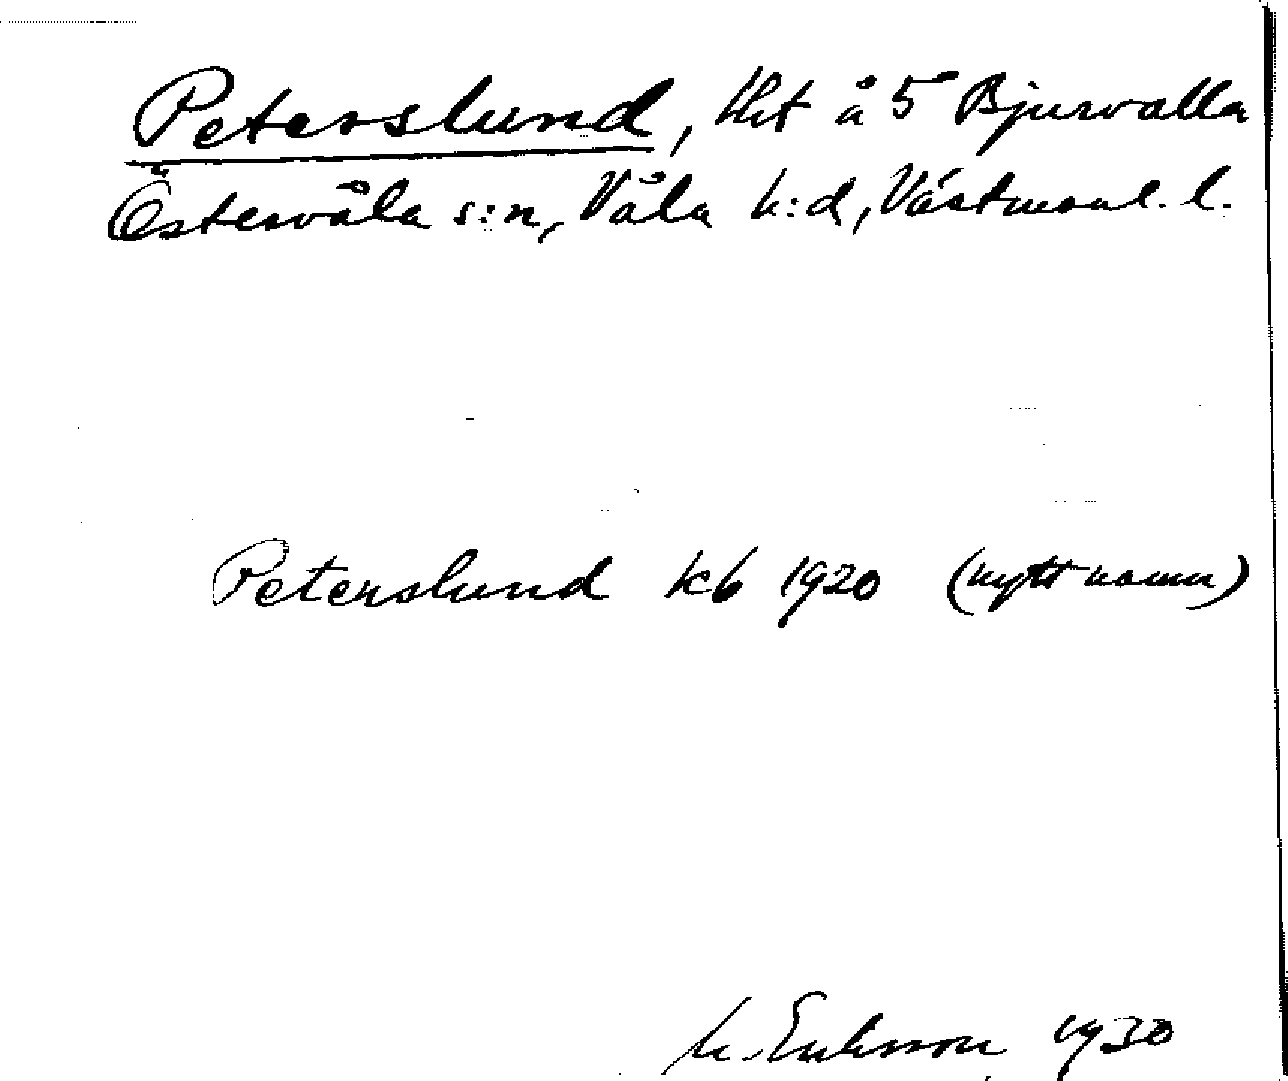 Peterslund, lht å 5 Bjurvalla
Östervåla s:n, Våla h:d, Västmanl. l.
Peterslund kb 1920 (nytt namn)
M. Eriksson 1930